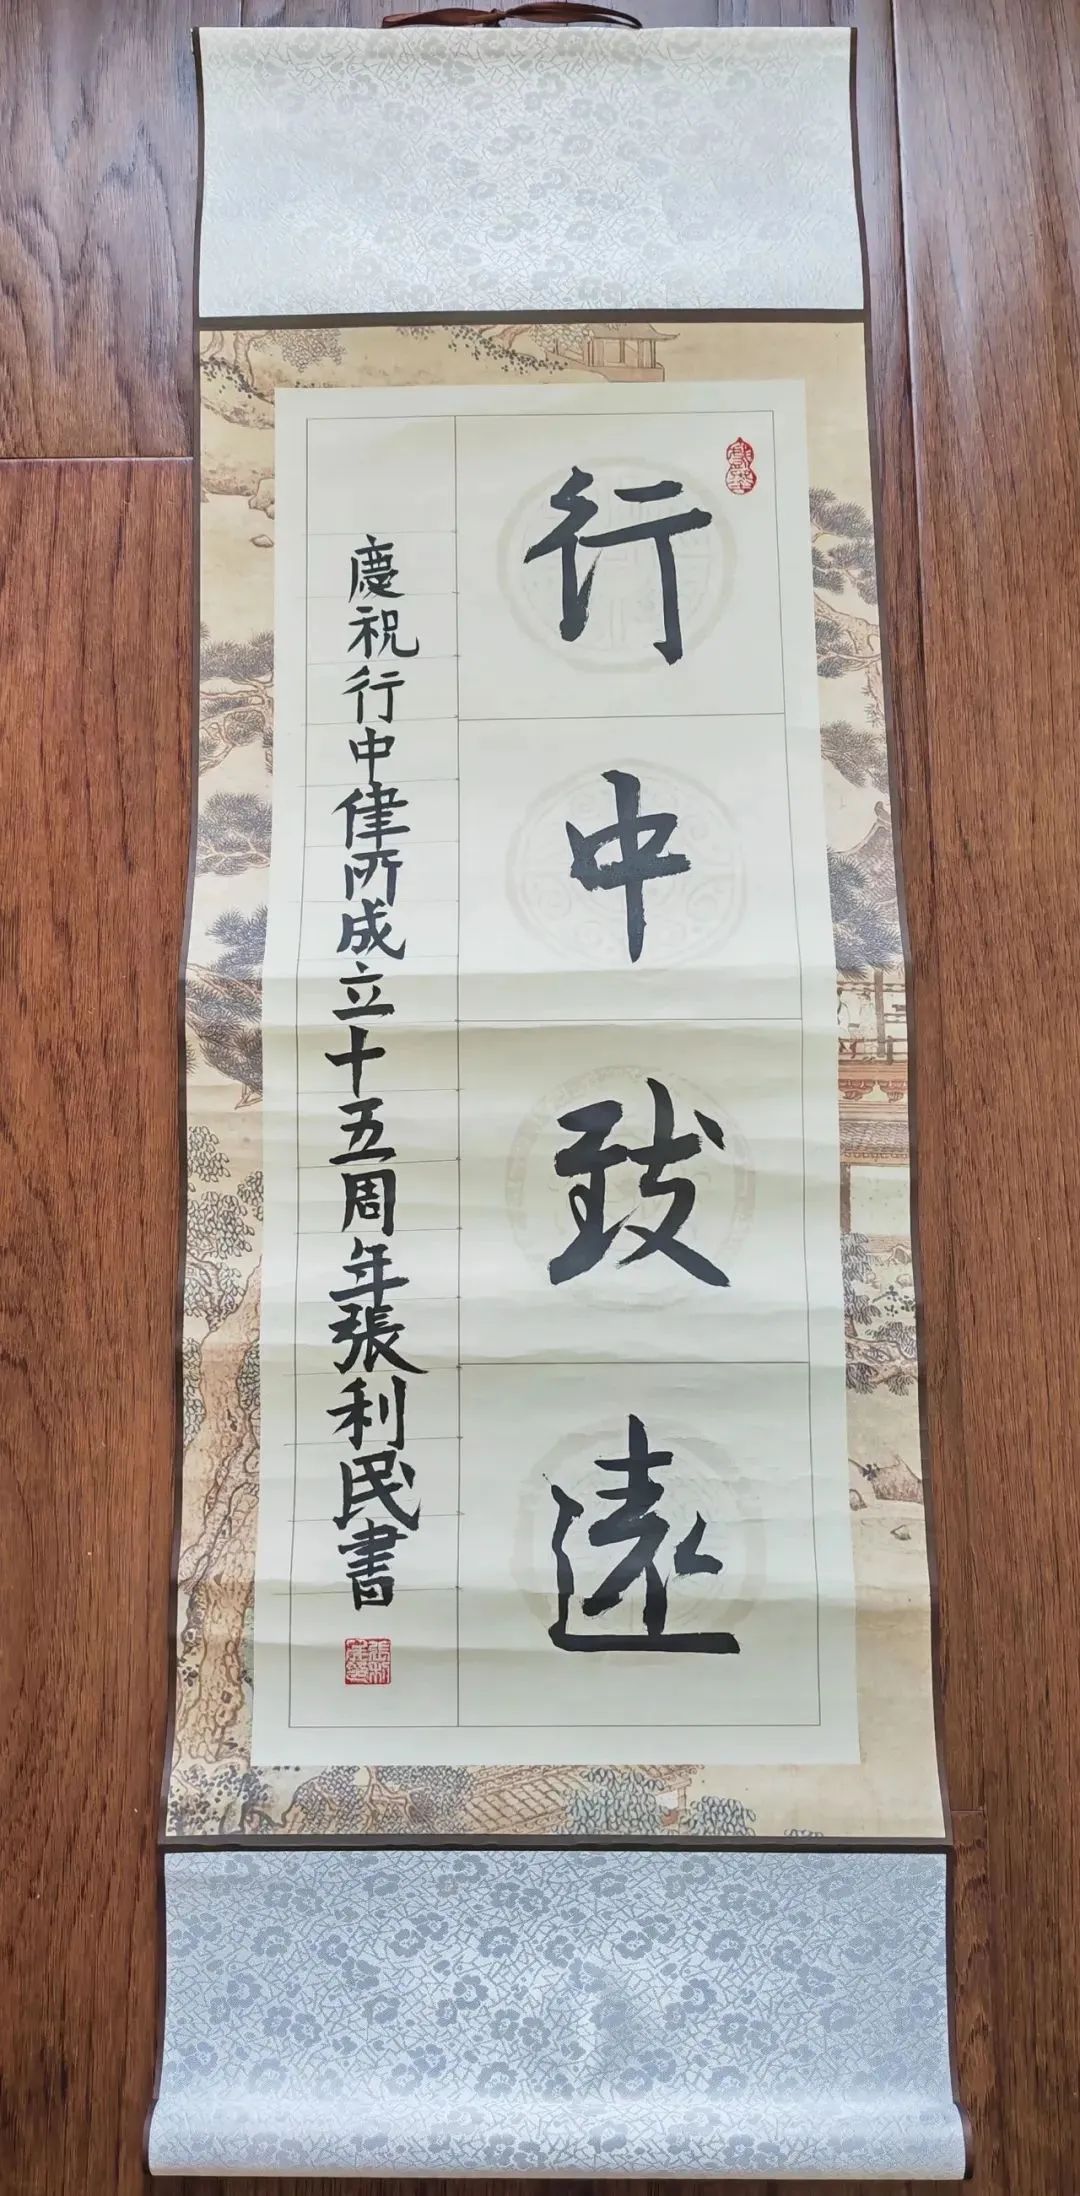 行中致遠
慶祝行中律所成立十五周年張利民書